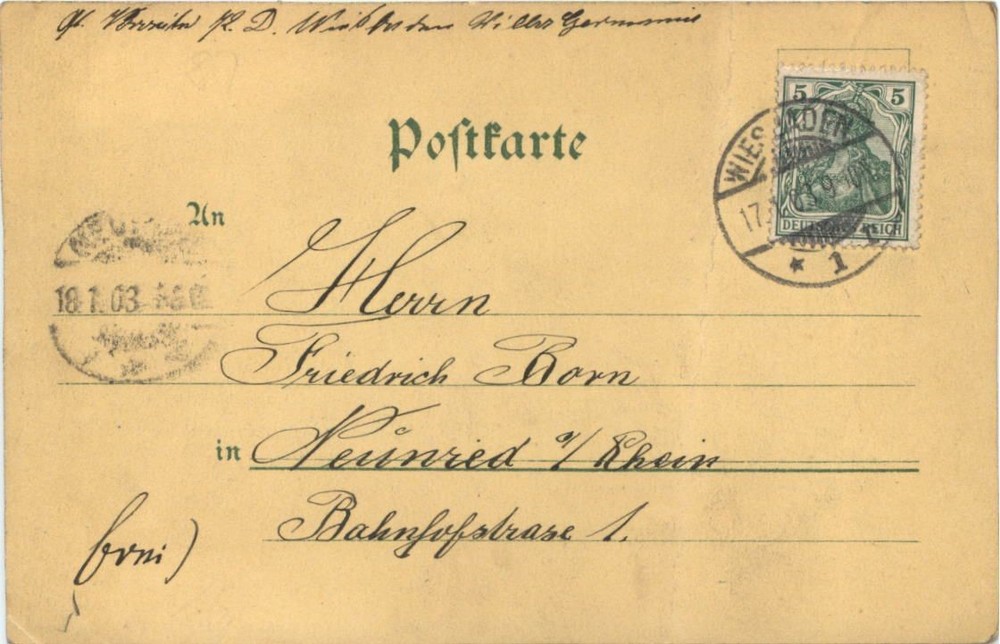 Wiesbaden
Postkarte
5 5
WIESBADEN
17.
DEUTSCHES REICH
* 1
An
18.1.03.
Herrn
Friedrich Born
in Neünried a/Rhein
Bahnhofstrase 1.
frei)